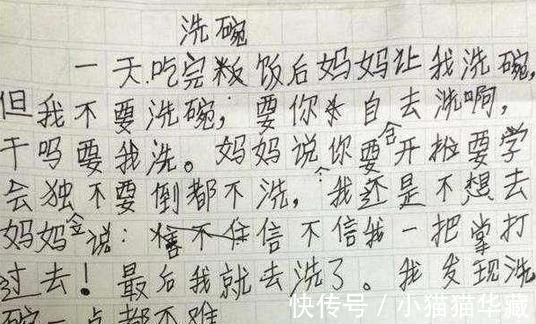 洗碗
一天吃完粄饭后妈妈让我洗碗,
但我不要洗碗, 要你自去洗啊,
干吗要我洗。妈妈说你要开始要学
会独不要倒都不洗, 我还是不想去
妈妈说: 信不信我一把掌打
过去! 最后我就去洗了。我发现洗
碗一点都不难
快传号 / 小猫猫华藏